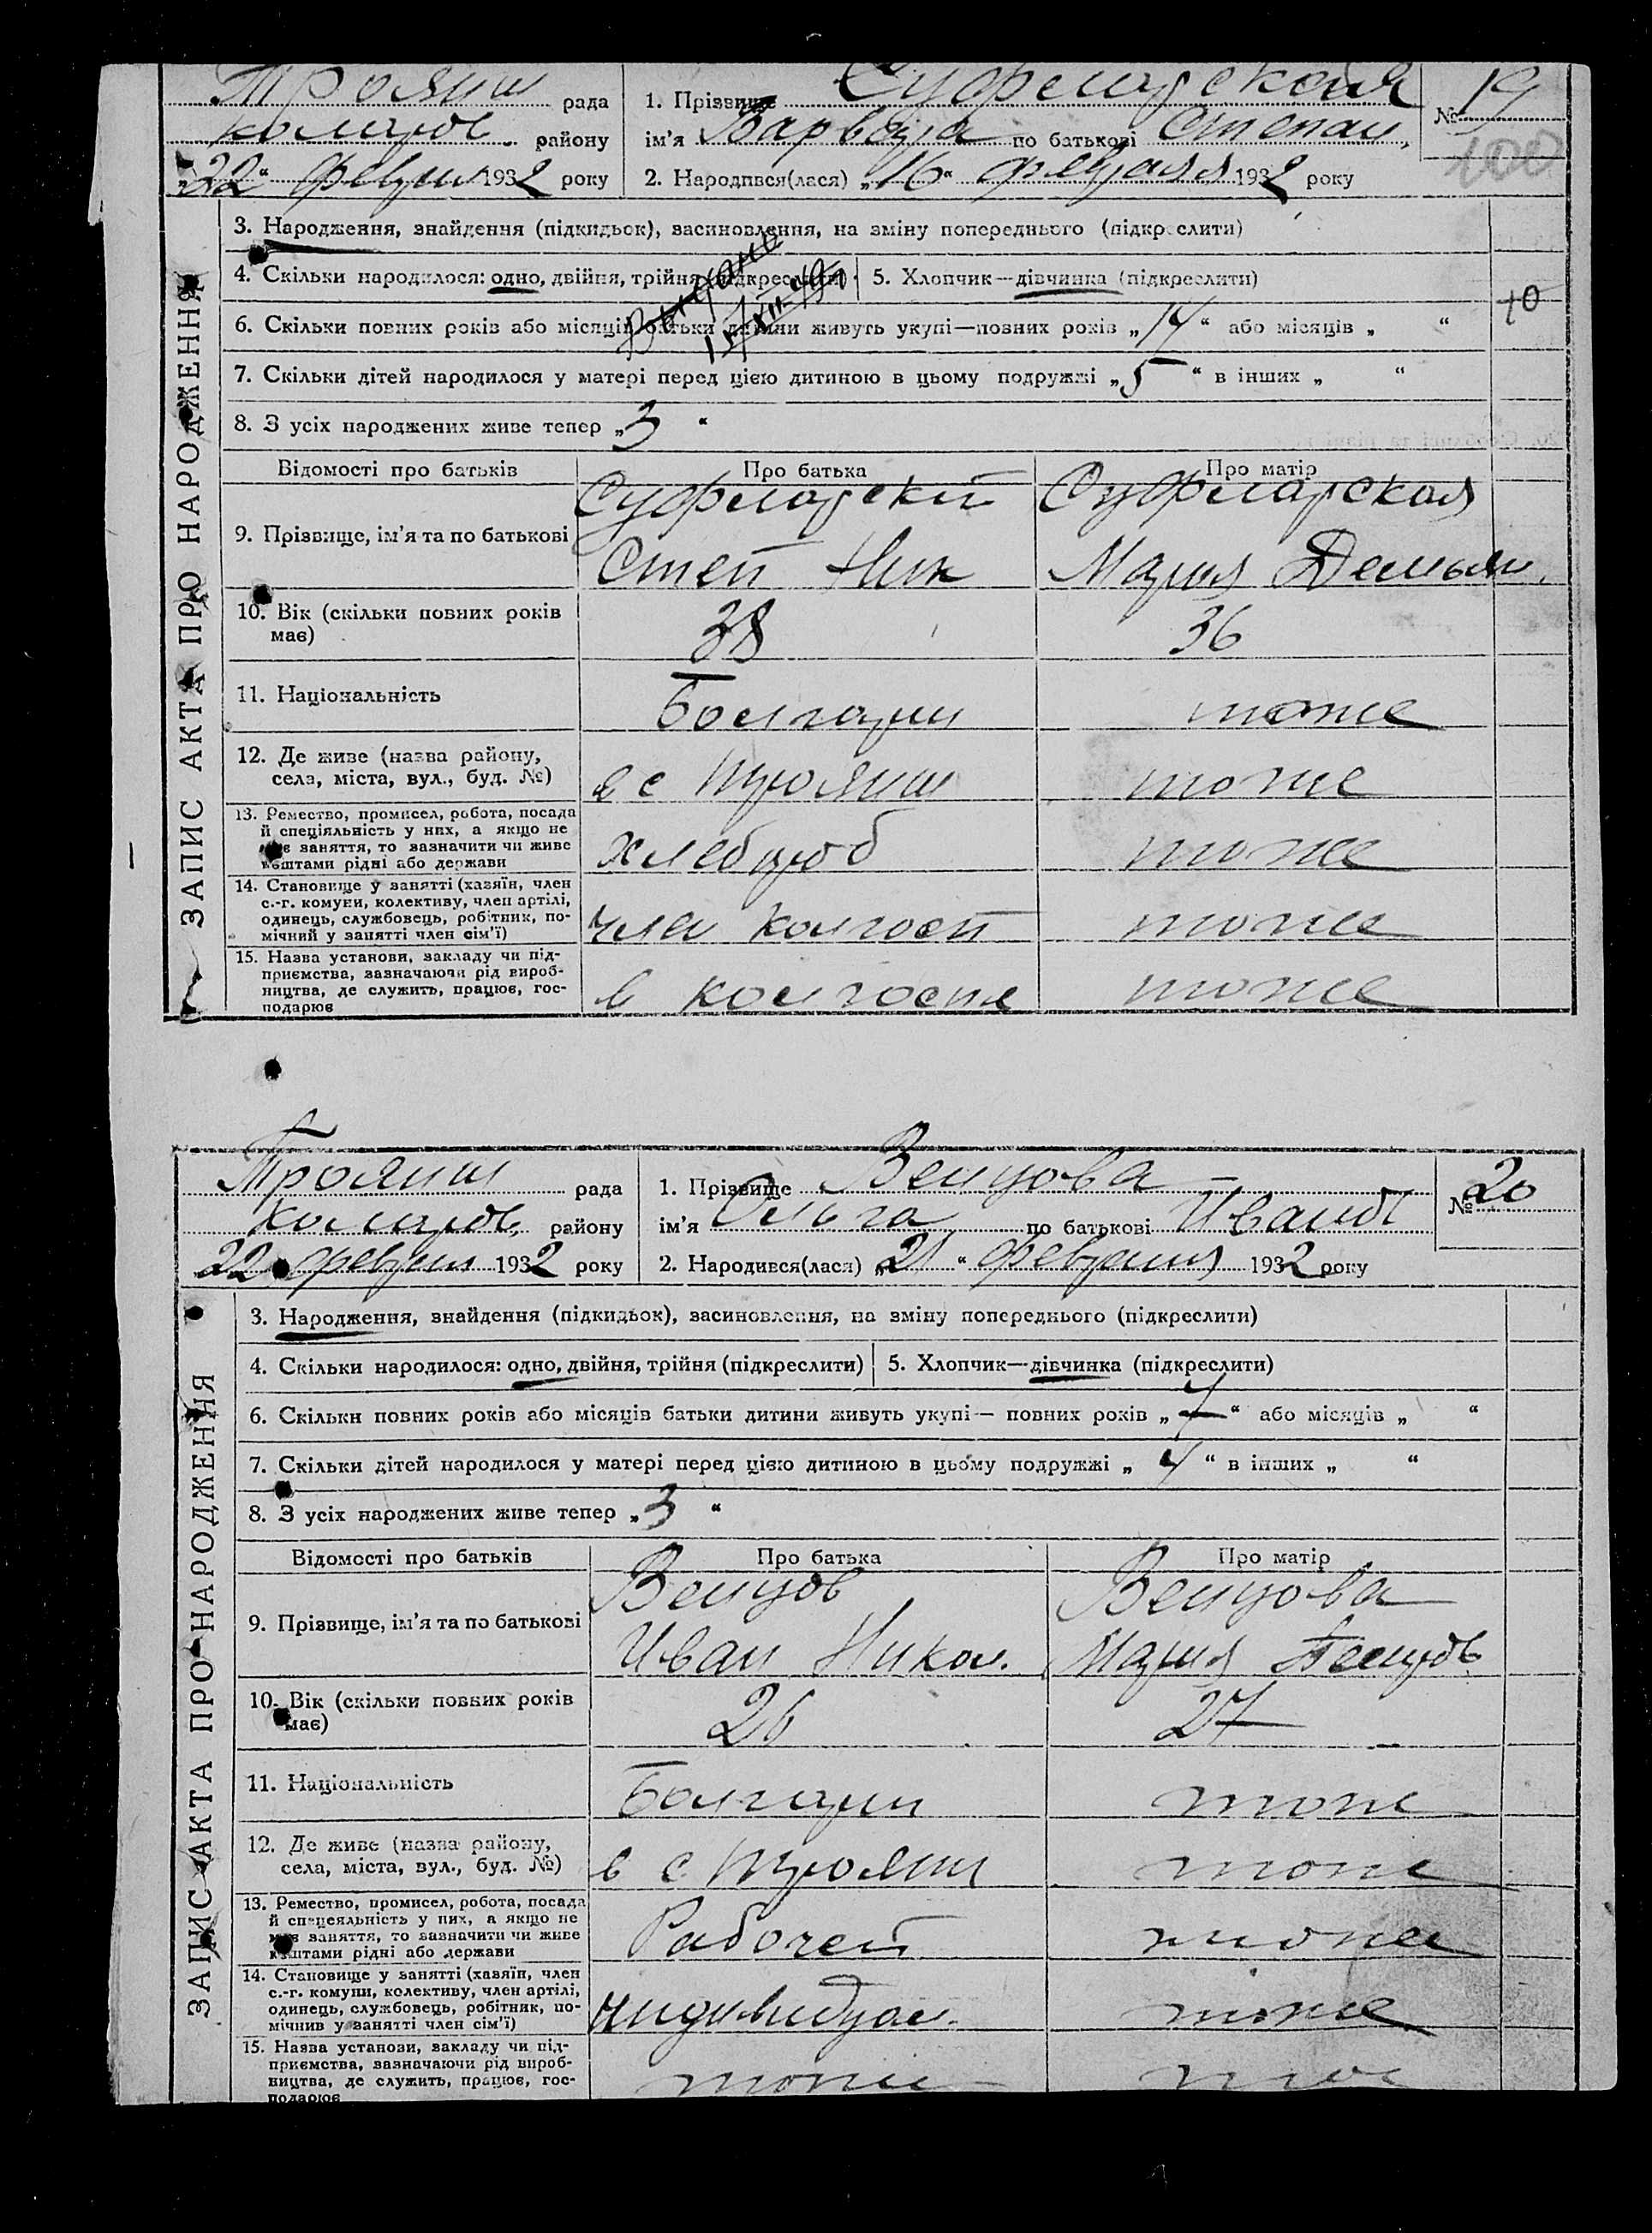 Троян рада
Комаров району
„22“ февраля 1932 року
1. Прізвище
ім’я Варвара по батькові Степан.
2. Народився(лася) „16“ февраля 1932 року
№ 19
100
ЗАПИС АКТА ПРО НАРОДЖЕННЯ
3. Народження, знайдення (підкидьок), засиновлення, на зміну попереднього (підкреслити)
4. Скільки народилося: одно, двійня, трійня (підкреслити) 5. Хлопчик—дівчинка (підкреслити)
6. Скільки повних років або місяців батьки дитини живуть укупі—повних років „14“ або місяців „ “
10
7. Скільки дітей народилося у матері перед цією дитиною в цьому подружжі „5“ в інших „ “
8. З усіх народжених живе тепер „3“
Відомості про батьків Про батька Про матір
9. Прізвище, ім’я та по батькові
Степ Ник Мария Демьян.
10. Вік (скільки повних років
має)
38 36
11. Національність Болгари тоже
12. Де живе (назва району,
села, міста, вул., буд. №)
в с Трояни тоже
13. Ремество, промисел, робота, посада
й спеціяльність у них, а якщо не
має заняття, то зазначити чи живе
коштами рідні або держави
хлебороб тоже
14. Становище у занятті (хазяїн, член
с.-г. комуни, колективу, член артілі,
одинець, службовець, робітник, по-
мічний у занятті член сім’ї)
член колгосп тоже
15. Назва установи, закладу чи під-
приємства, зазначаючи рід вироб-
ництва, де служить, працює, гос-
подарює
в колгоспе тоже
Троян рада
Комаров. району
22 февраля 1932 року
1. Прізвище
ім’я Ольга по батькові Иванов
2. Народився(лася) „21“ февраля 1932 року
№ 20
ЗАПИС АКТА ПРО НАРОДЖЕННЯ
3. Народження, знайдення (підкидьок), засиновлення, на зміну попереднього (підкреслити)
4. Скільки народилося: одно, двійня, трійня (підкреслити) 5. Хлопчик—дівчинка (підкреслити)
6. Скільки повних років або місяців батьки дитини живуть укупі— повних років „7“ або місяців „ “
7. Скільки дітей народилося у матері перед цією дитиною в цьому подружжі „4“ в інших „ “
8. З усіх народжених живе тепер „3“
Відомості про батьків Про батька Про матір
9. Прізвище, ім’я та по батькові
Иван Никол. Мария
10. Вік (скільки повних років
має)
26 27
11. Національність Болгари тоже
12. Де живе (назва району,
села, міста, вул., буд. №)
в с Трояни тоже
13. Ремество, промисел, робота, посада
й спецеяльність у них, а якщо не
має заняття, то зазначити чи живе
коштами рідні або держави
Рабочей тоже
14. Становище у занятті (хазяїн, член
с.-г. комуни, колективу, член артілі,
одинець, службовець, робітник, по-
мічнив у занятті член сім’ї)
индивидуал. тоже
15. Назва установи, закладу чи під-
приємства, зазначаючи рід вироб-
ництва, де служить, працює, гос-
подарює
тоже тоже